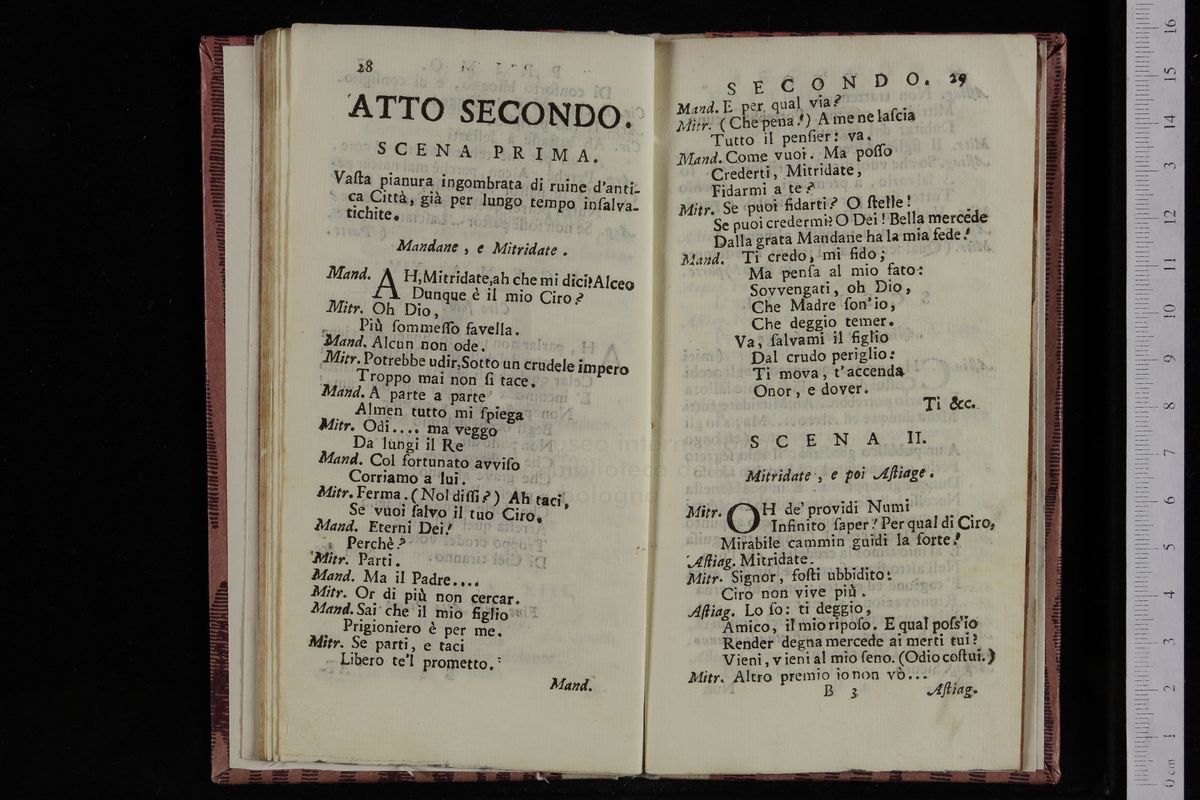 28
ATTO SECONDO.
SCENA PRIMA.
Vaſta pianura ingombrata di ruine d'anti-
ca Città, già per lungo tempo inſalva-
tichite.
Mandane, e Mitridate.
Mand. AH, Mitridate, ah che mi dici? Alceo
Dunque è il mio Ciro?
Mitr. Oh Dio,
Più ſommeſſo favella.
Mand. Alcun non ode.
Mitr. Potrebbe udir, Sotto un crudele impero
Troppo mai non ſi tace.
Mand. A parte a parte
Almen tutto mi ſpiega
Mitr. Odi.... ma veggo
Da lungi il Re
Mand. Col fortunato avviſo
Corriamo a lui.
Mitr. Ferma. (Nol diſſi?) Ah taci,
Se vuoi ſalvo il tuo Ciro.
Mand. Eterni Dei!
Perchè?
Mitr. Parti.
Mand. Ma il Padre....
Mitr. Or di più non cercar.
Mand. Sai che il mio figlio
Prigioniero è per me.
Mitr. Se parti, e taci
Libero te'l prometto.
Mand.
SECONDO. 29
Mand. E per qual via?
Mitr. (Che pena!) A me ne laſcia
Tutto il penſier: va.
Mand. Come vuoi. Ma poſſo
Crederti, Mitridate,
Fidarmi a te?
Mitr. Se puoi fidarti? O ſtelle!
Se puoi credermi? O Dei! Bella mercede
Dalla grata Mandane ha la mia fede!
Mand. Ti credo, mi fido;
Ma penſa al mio fato:
Sovvengati, oh Dio,
Che Madre ſon'io,
Che deggio temer.
Va, ſalvami il figlio
Dal crudo periglio:
Ti mova, t'accenda
Onor, e dover.
Ti &c.
SCENA II.
Mitridate, e poi Aſtiage.
Mitr. OH de' providi Numi
Infinito ſaper! Per qual di Ciro,
Mirabile cammin guidi la ſorte!
Aſtiag. Mitridate.
Mitr. Signor, foſti ubbidito:
Ciro non vive più.
Aſtiag. Lo ſo: ti deggio,
Amico, il mio ripoſo. E qual poſs'io
Render degna mercede ai merti tui?
Vieni, vieni al mio ſeno. (Odio coſtui.)
Mitr. Altro premio io non vò...
B 3 Aſtiag.